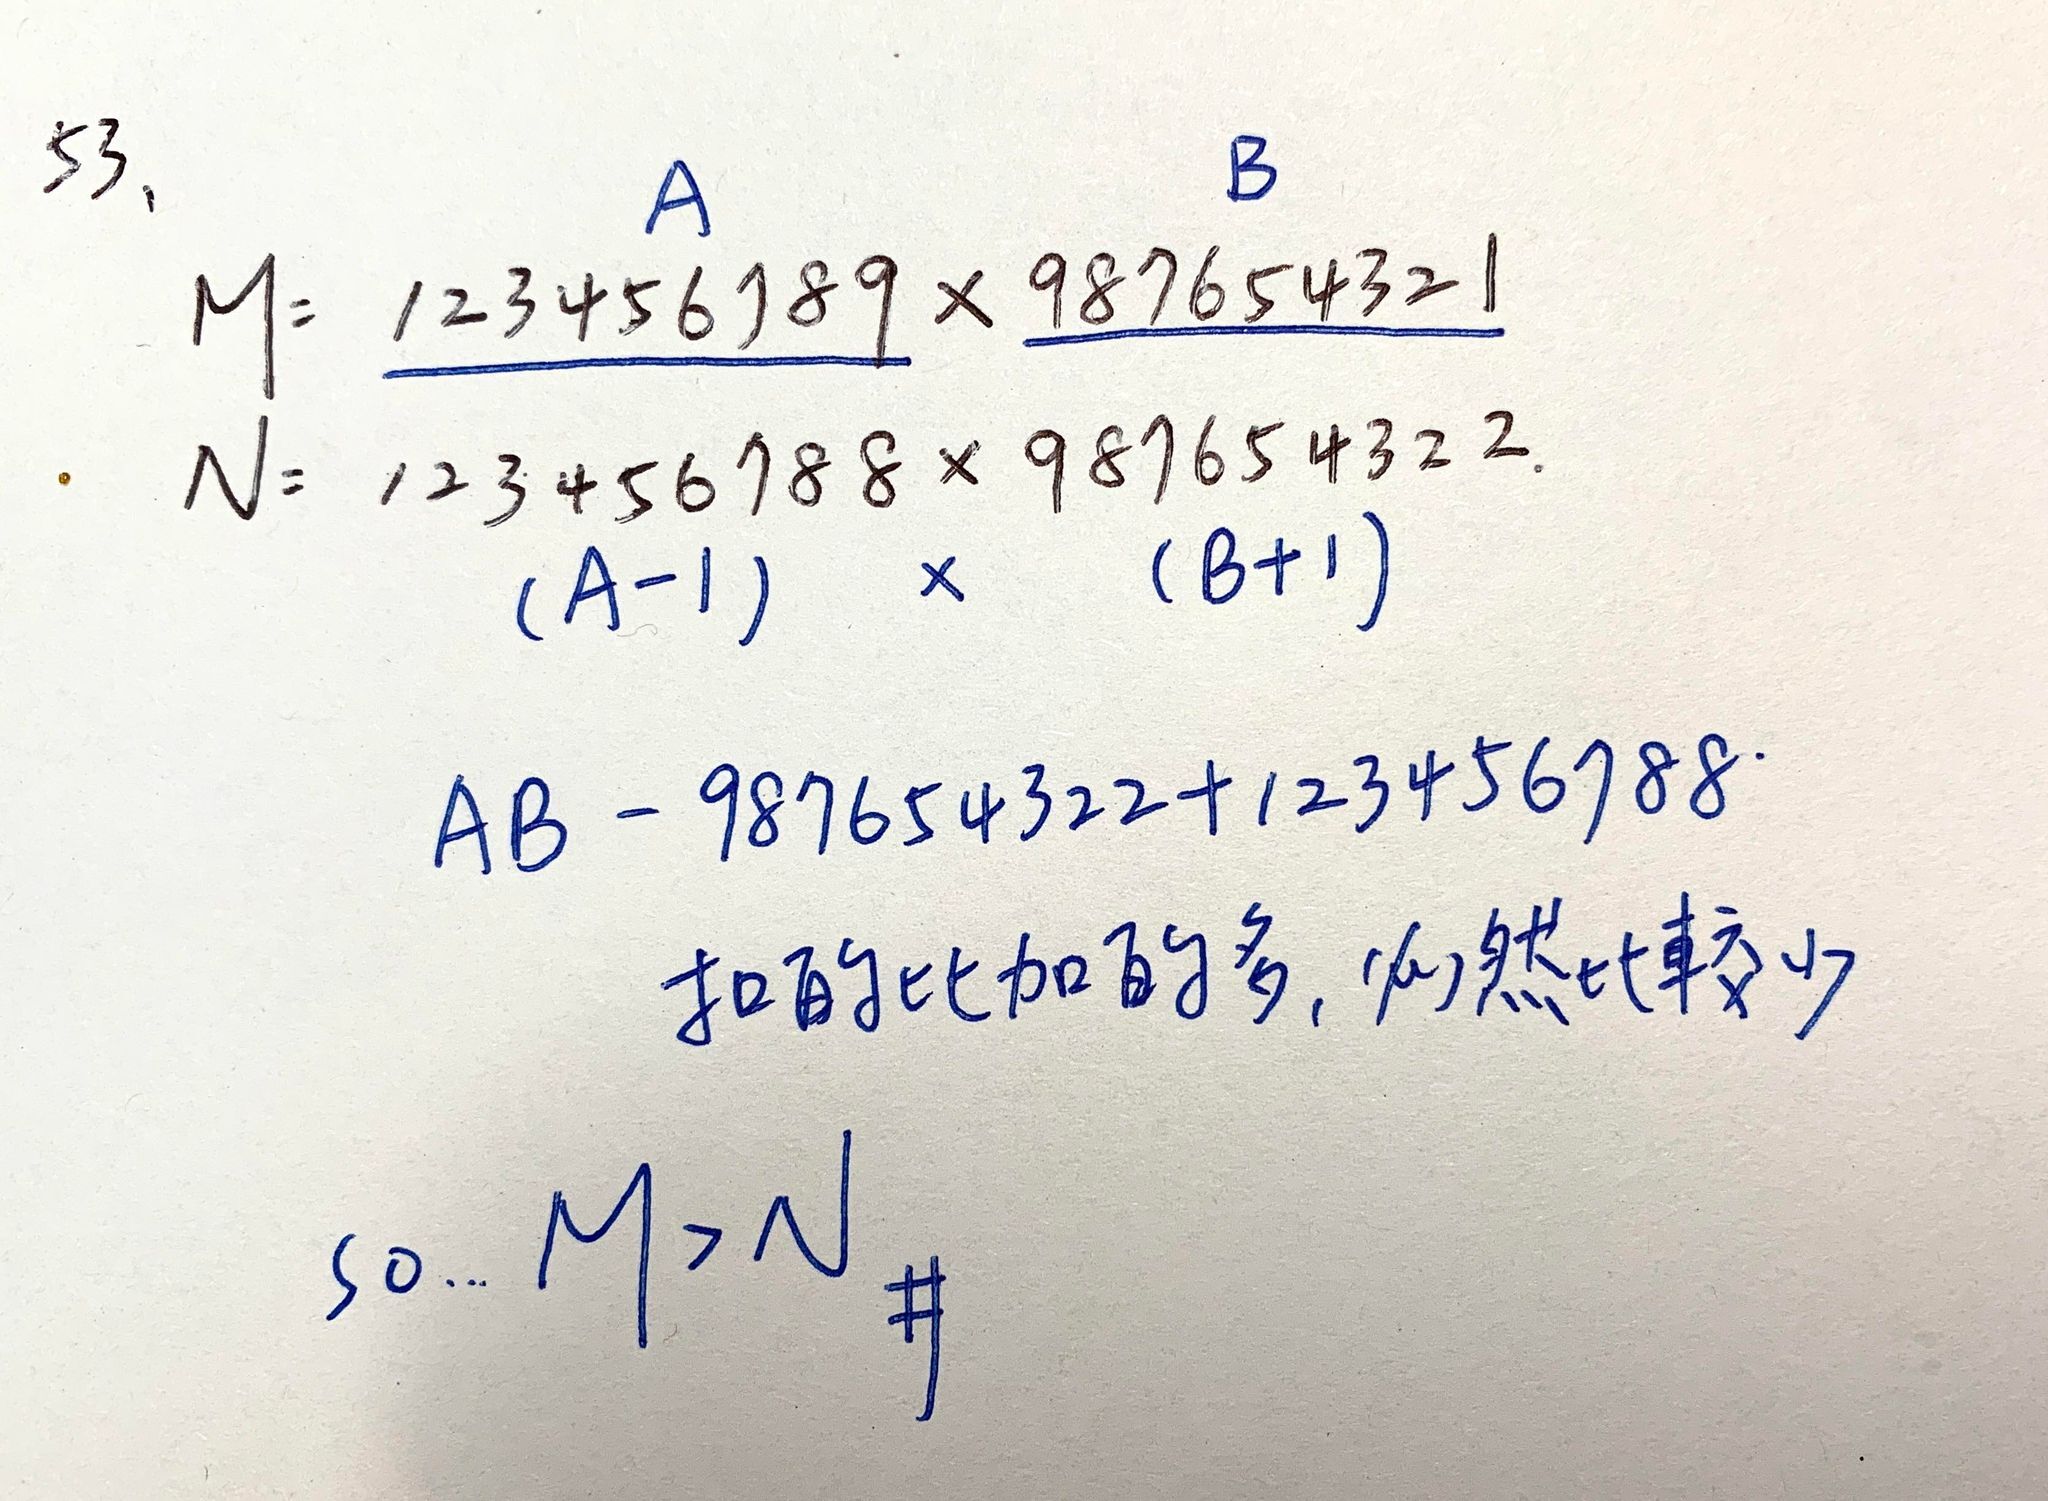 53.
A B
M= 123456789 × 987654321
N= 123456788 × 987654322.
(A-1) × (B+1)
AB - 987654322+123456788.
扣的比加的多,必然比較少
so... M>N #